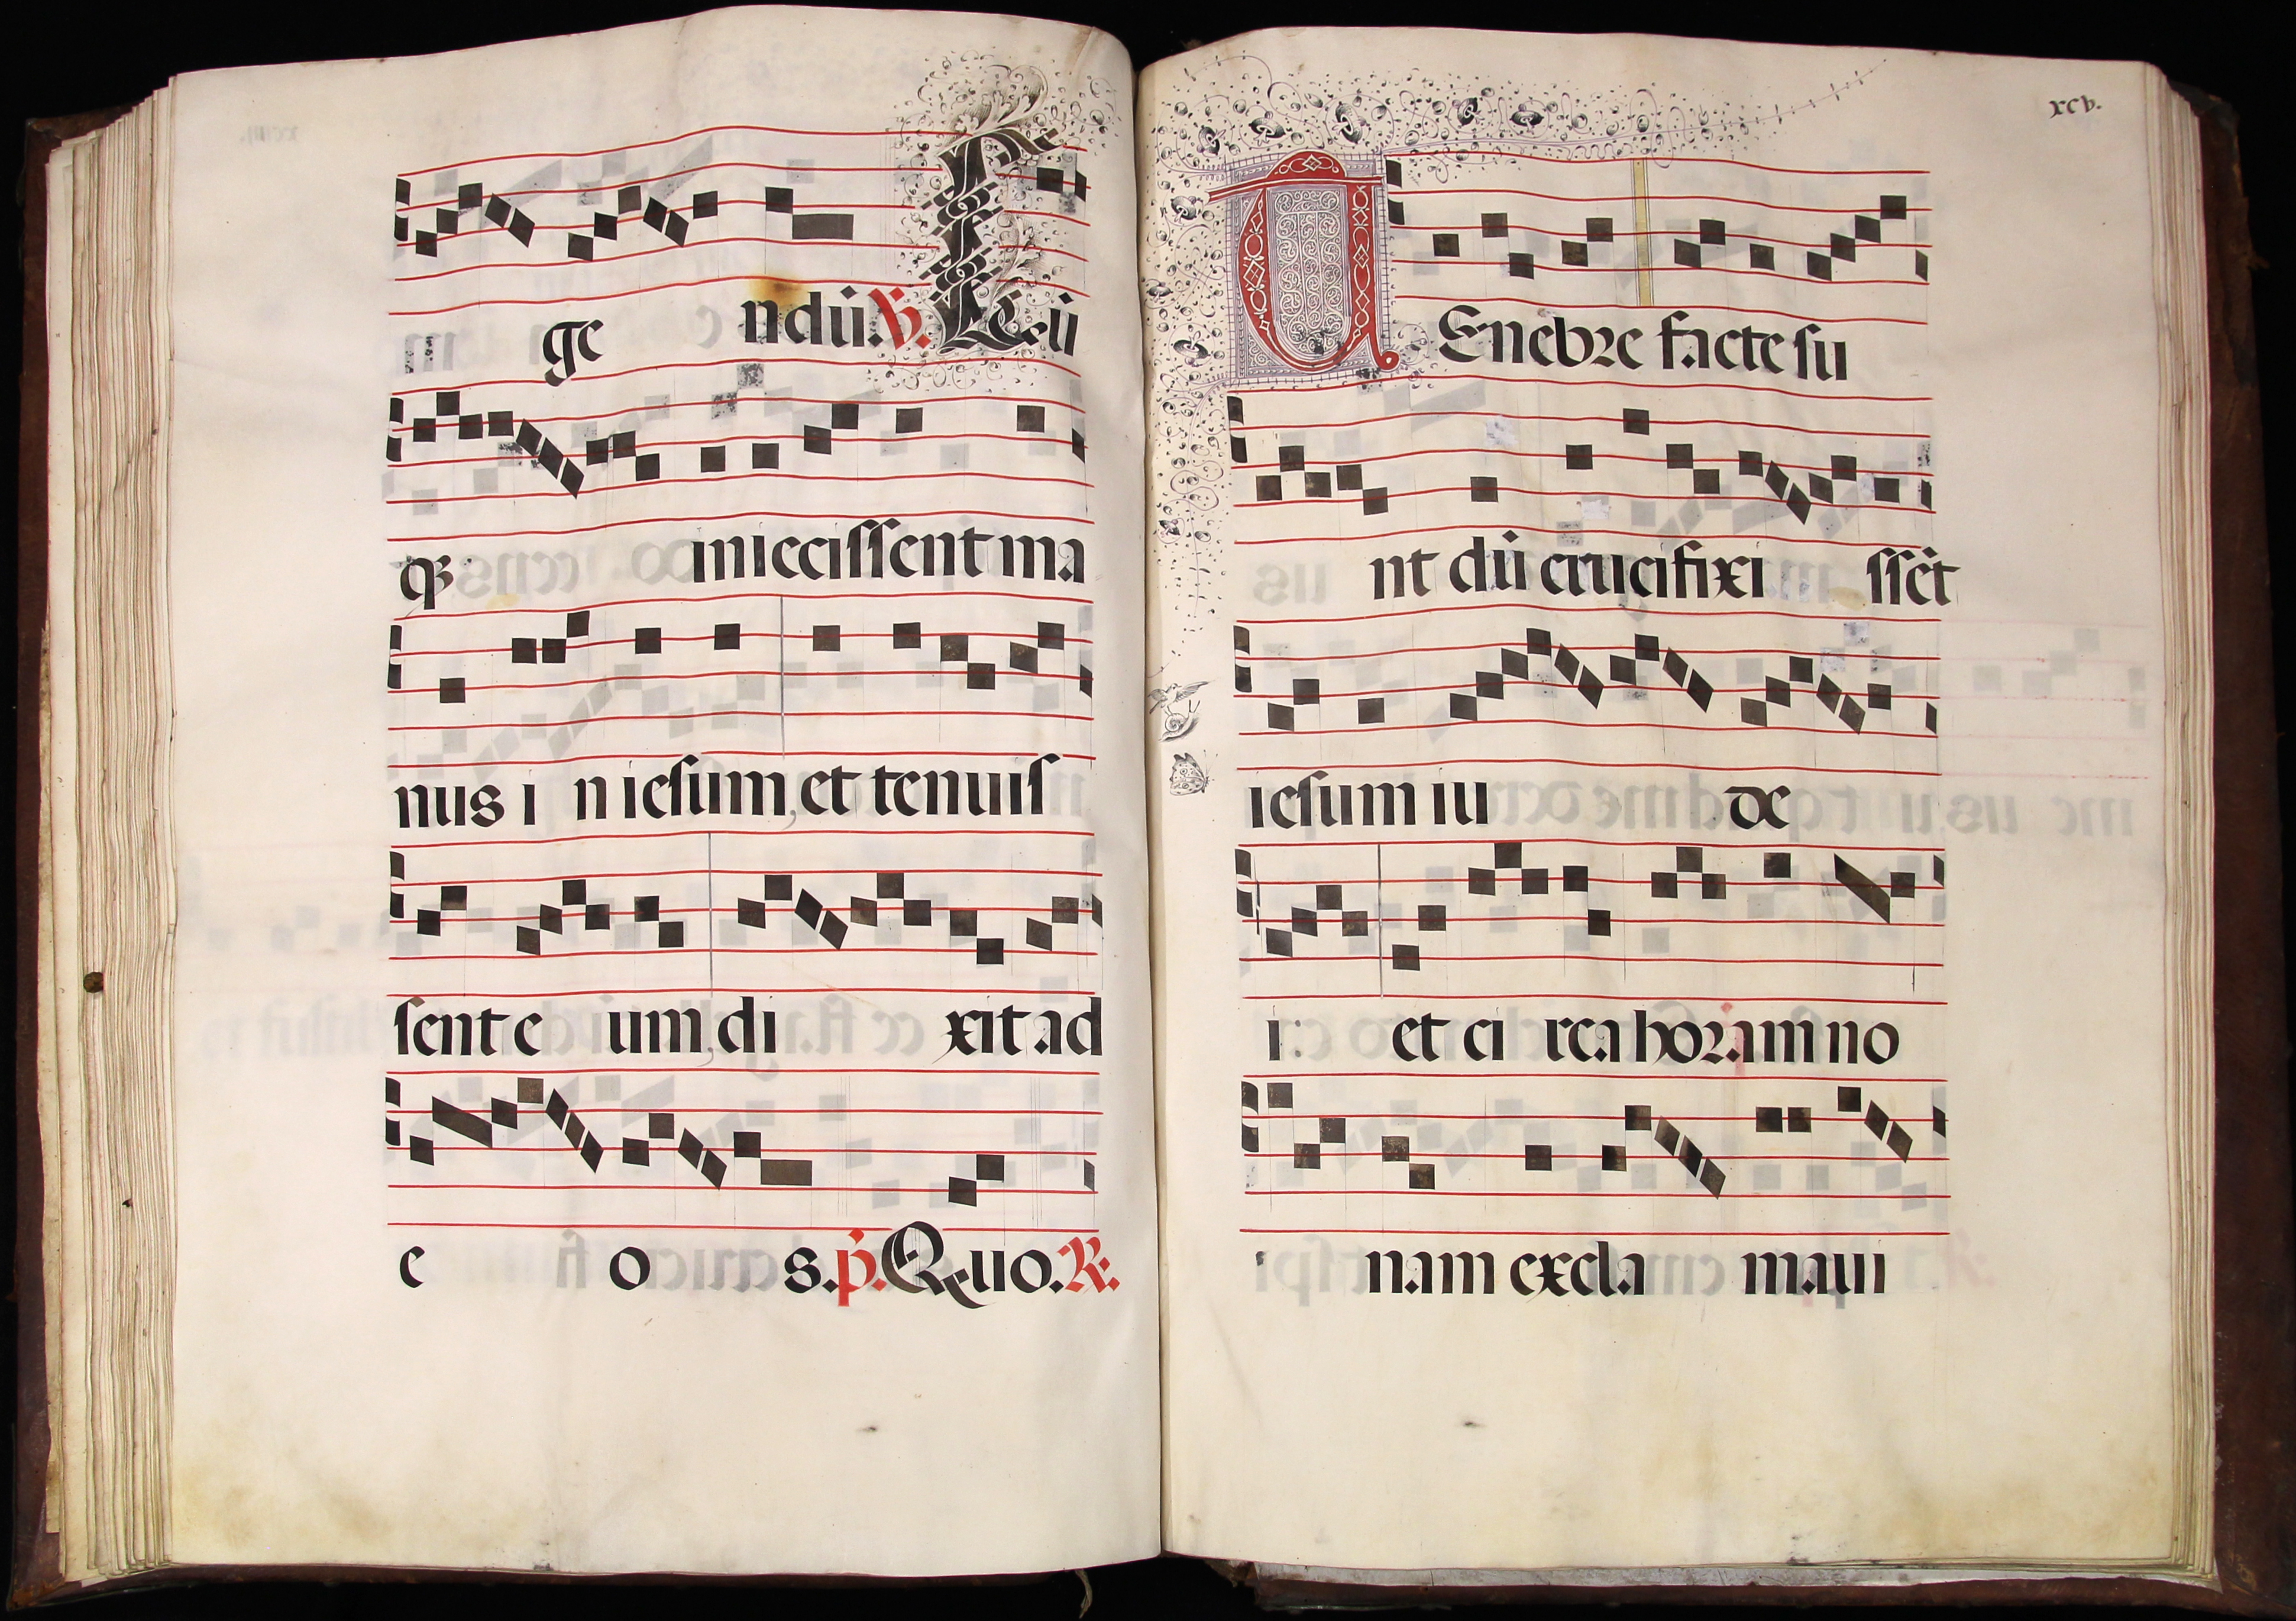 ge ndū. V. Cū
q̄ iniecissent ma
nus i n iesum, et tenuis
sent e um, di xit ad
e o s. p̄. Quo. R.
xcv.
TEnebre facte su
nt dū crucifixi ssēt
iesum iu de
i: et ci rca horam no
nam excla maui